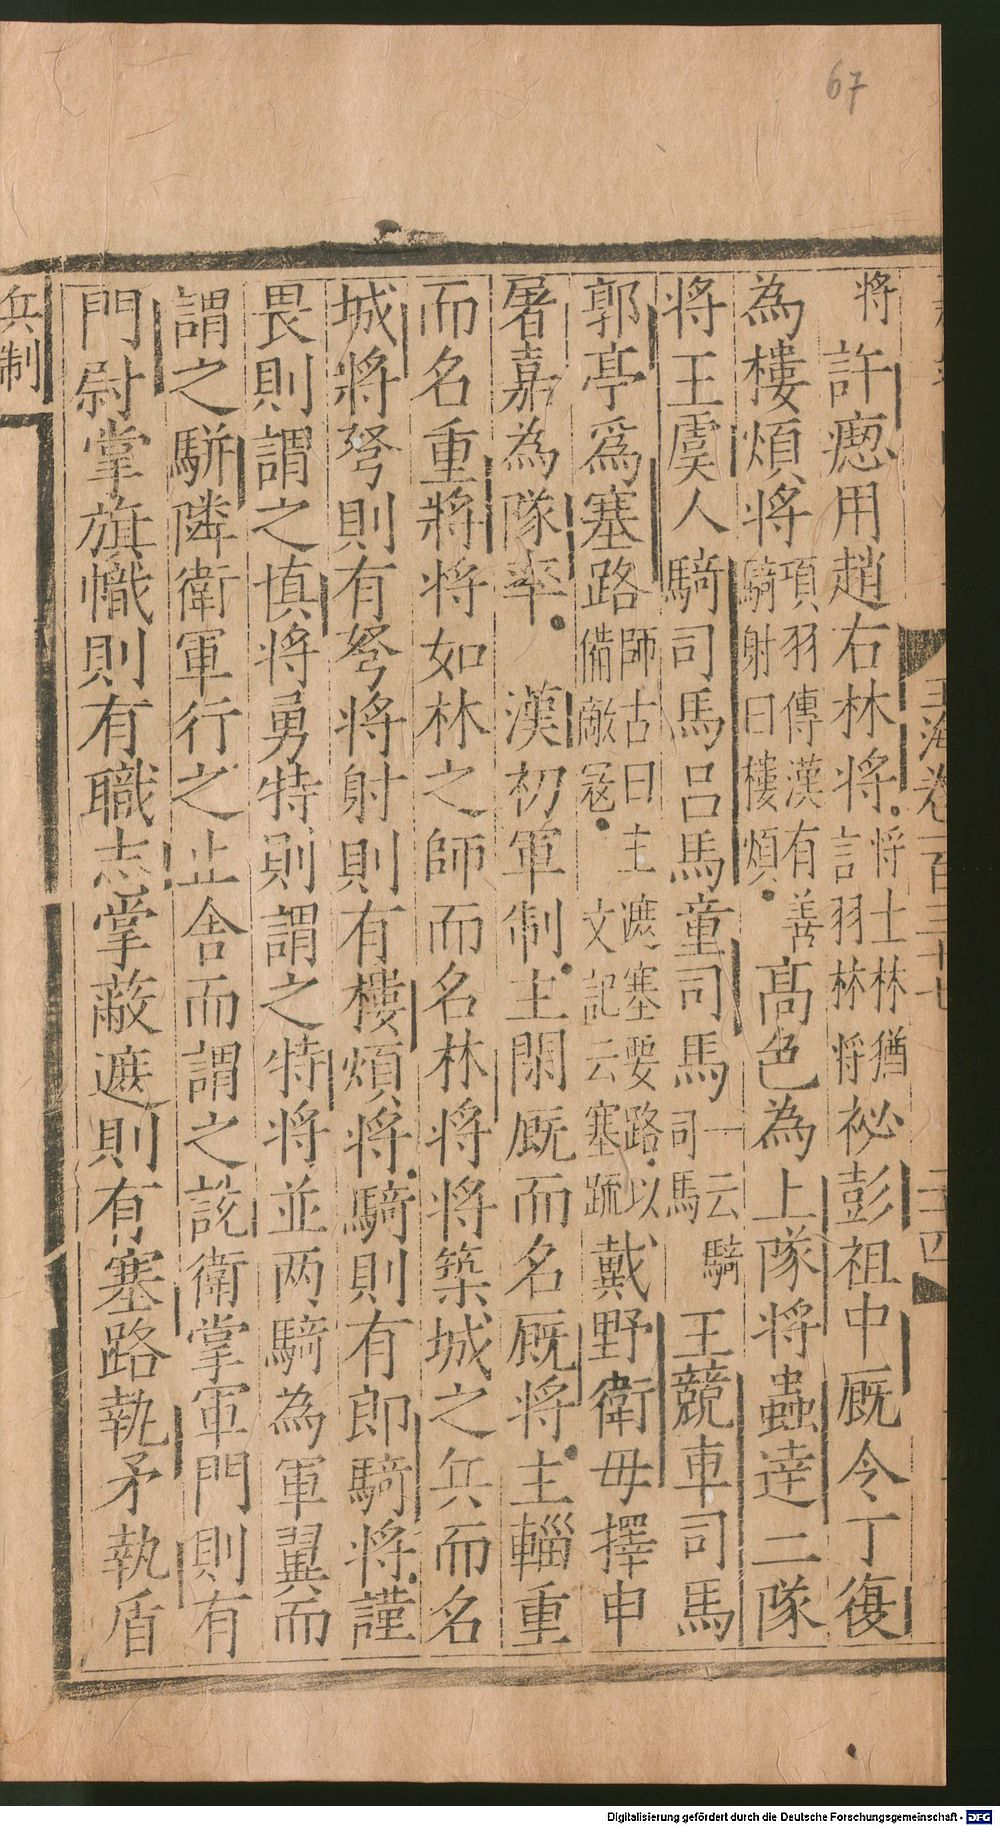 67
玉海卷一百三十七 二十四
将許瘛用趙右林将将士林猶言羽林将祕彭祖中厩令丁復
為樓煩将項羽傳漢有善騎射曰樓煩高色為上隊将蟲逹二隊
将王虞人騎司馬吕馬童司馬一云騎司馬王競車司馬
郭亭爲塞路師古曰主遮塞要路以備敵宼文記云塞疏戴野衛毋擇申
屠嘉為隊率漢初軍制主閑厩而名厩将主輜重
而名重將将如林之師而名林将将築城之兵而名
城将将弩則有弩将射則有樓煩将騎則有郎騎将謹
畏則謂之慎将勇特則謂之特将並两騎為軍翼而
謂之駢隣衛軍行之止舎而謂之説衛掌軍門則有
門尉掌旗幟則有職志掌蔽遮則有塞路執矛執盾
兵制
Digitalisierung gefördert durch die Deutsche Forschungsgemeinschaft - DFG